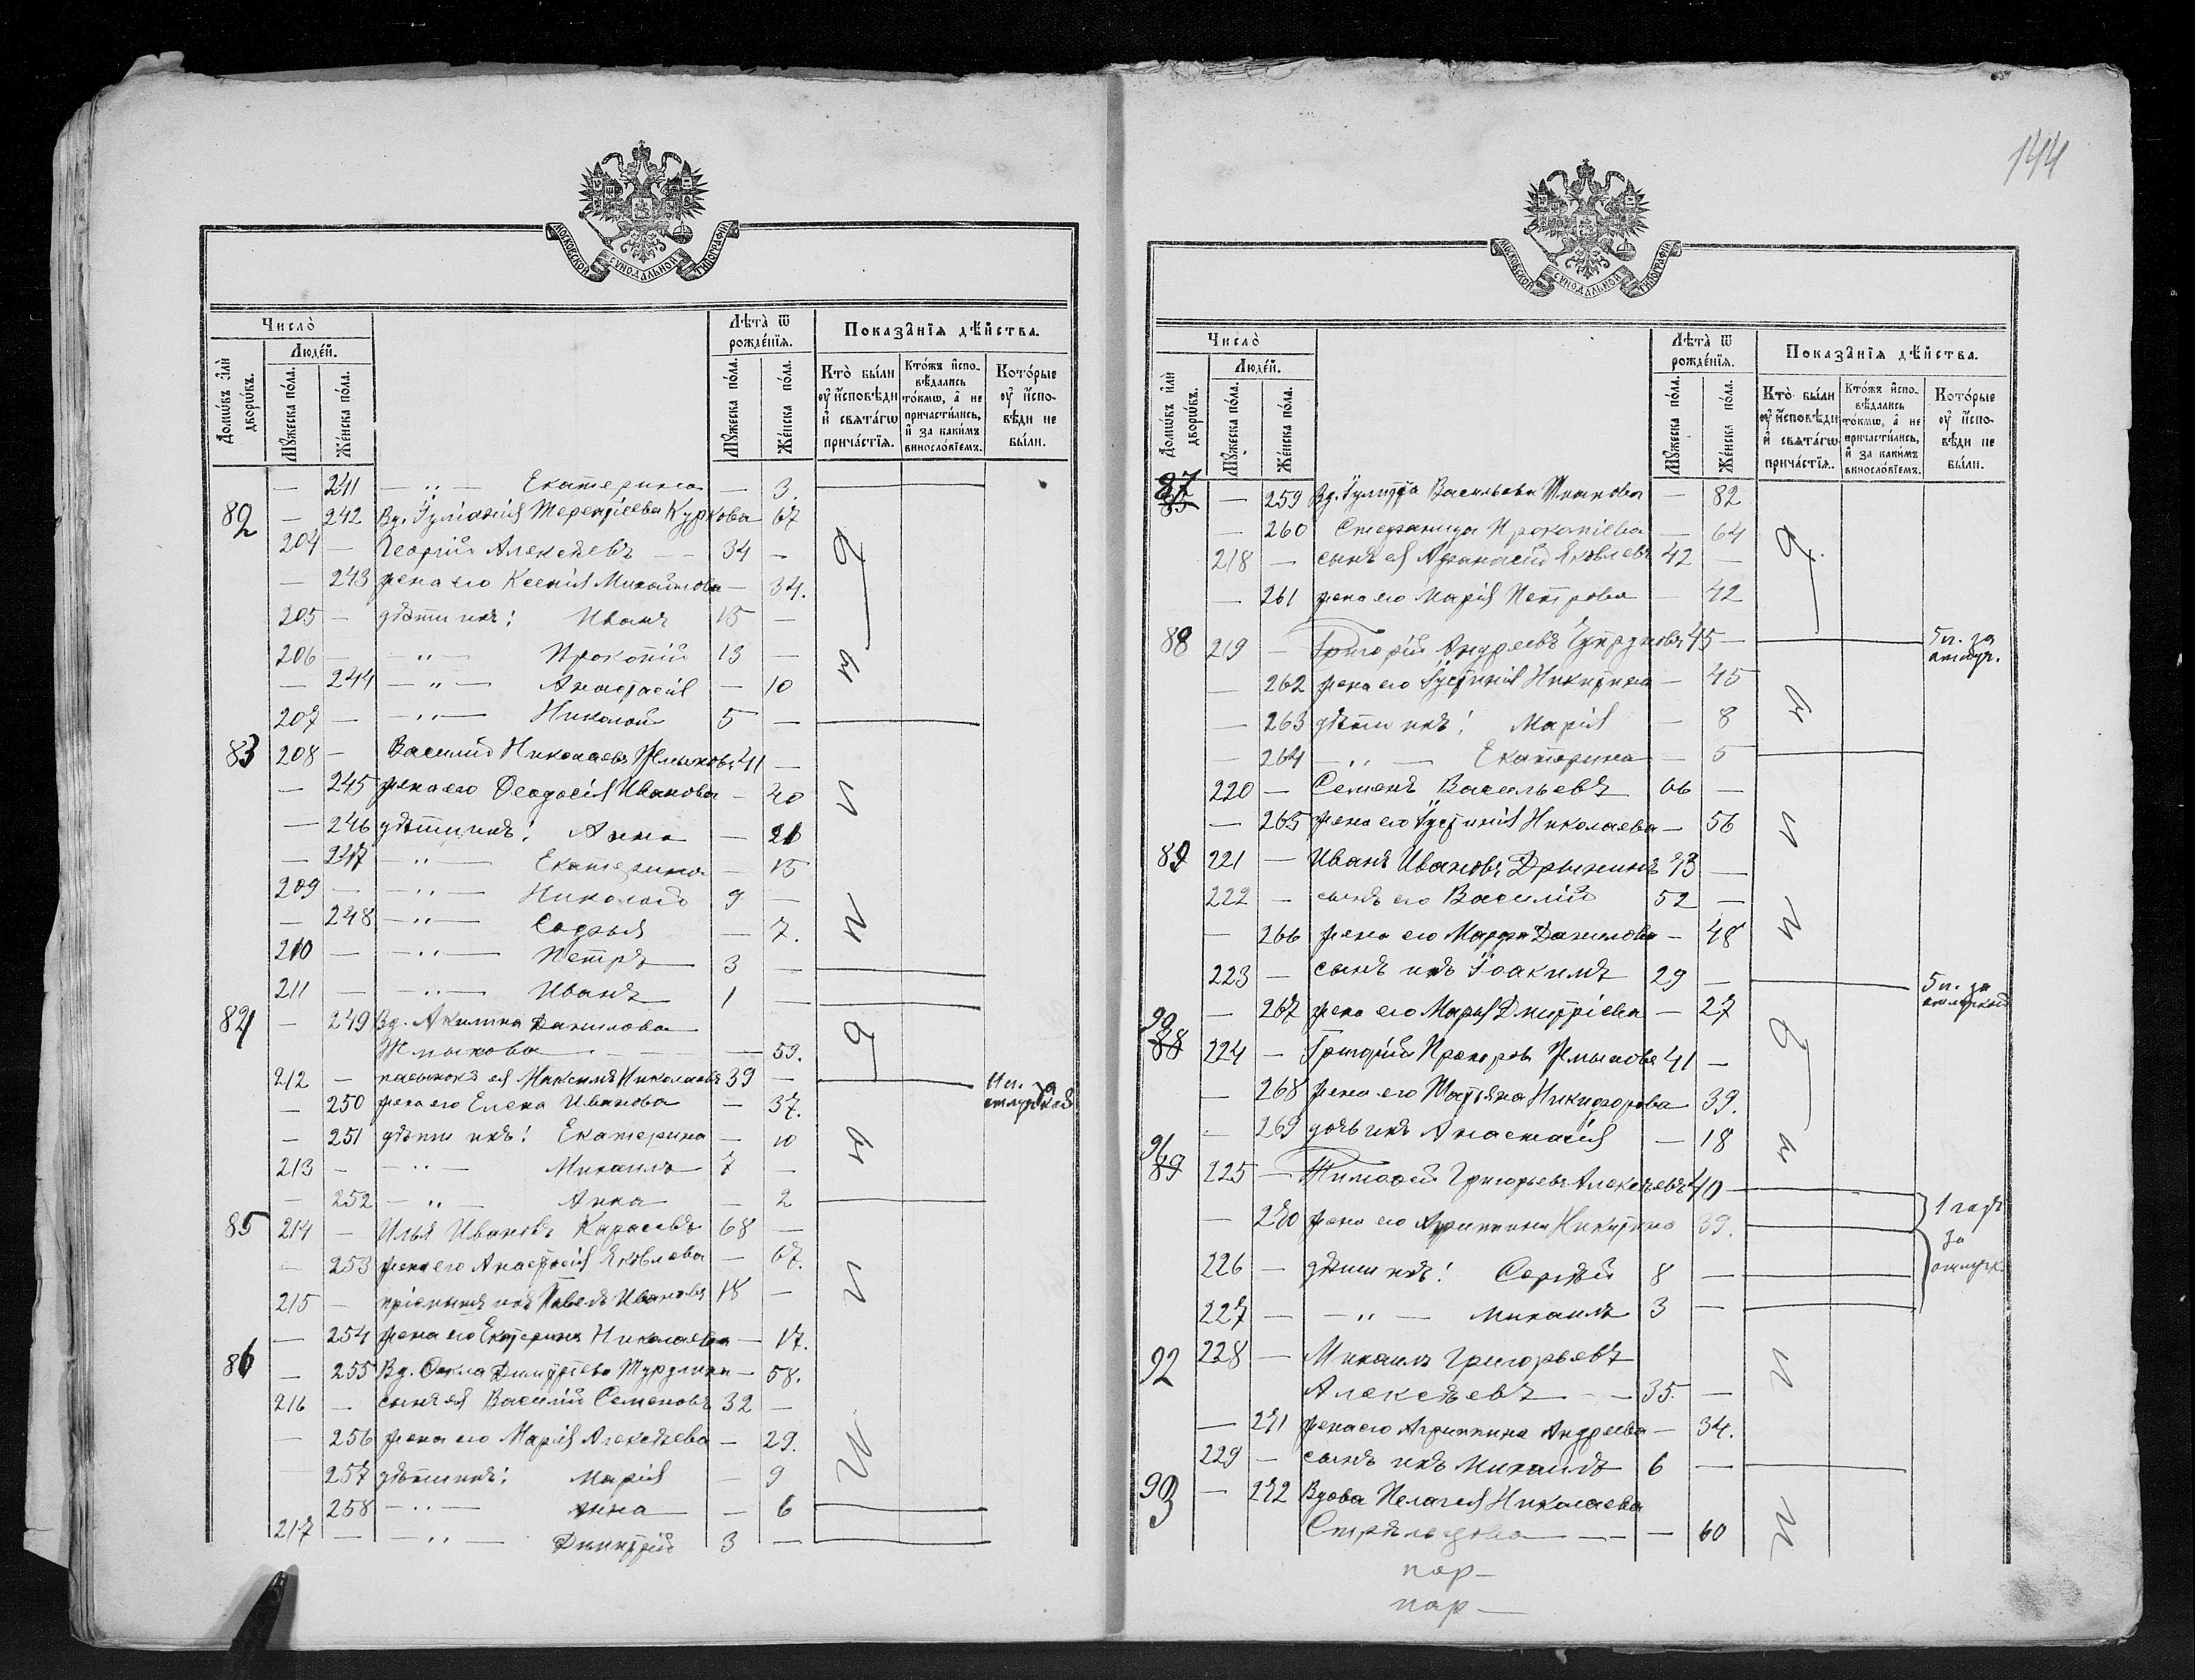 144
МОСКОВСКОЙ СУНОДАЛЬНОЙ ТИПОГРАФІИ
Число̀
Домѡ́въ и҆лѝ дворѡ́въ.
Люде́й.
Мꙋ́жеска по́ла.
Же́нска по́ла.
Лѣ́та ѿ рожде́нїѧ.
Мꙋ́жеска по́ла.
Же́нска по́ла.
Показа̑нїѧ дѣ́йства.
Кто̀ бы́ли ᲂу҆ и҆́сповѣди и҆ свѧта́гѡ прича́стїѧ.
Кто́жъ и҆спо-вѣ́дались то́кмѡ, а҆ не причасти́лись, и҆ за каки́мъ винослов́їемъ.
Кото́рые ᲂу҆ и҆́спо-вѣди не бы́ли.
— 241 — „ — Екатерина — 3.
82 — 242 Вд. Іуліанія Терентіева Куркова 67
204 — Георгій Алексѣевъ — 34 —
— 243 жена его Ксенія Михайлова — 34.
205 — дѣти ихъ: Иванъ 15 —
206 — „ — Прокопій 13 —
— 244 — „ — Анастасія — 10
207 — — „ — Николай 5 —
83 208 — Василій Николаевъ Жмыховъ 41 —
— 245 жена его Ѳеодосія Иванова — 40
— 246 дѣти ихъ: Анна — 20
— 247 — „ — Екатерина — 15
209 — — „ — Николай 9 —
— 248 — „ — Софья — 7.
210 — — „ — Петръ 3 —
211 — — „ — Иванъ 1 —
84 — 249 Вд. Акилина Данилова
Жмыхова — 59.
212 — пасынокъ ея Максимъ Николаевъ 39 —
— 250 жена его Елена Иванова — 37.
— 251 дѣти ихъ: Екатерина — 10
213 — — „ — Михаилъ 7 —
— 252 — „ — Анна — 2
85 214 — Илья Ивановъ Карасевъ 68 —
— 253 жена его Анастасія Яковлева — 67.
215 — пріемышъ ихъ Павелъ Ивановъ 18 —
— 254 жена его Екатерина Николаева — 17.
86 — 255 Вд. Ѳекла Димитріева — 58.
216 — сынъ ея Василій Семеновъ 32 —
— 256 жена его Марія Алексѣева — 29.
257 дѣти ихъ: Марія — 9
258 — „ — Анна — 6
217 — — „ — Димитрій 3 —
МОСКОВСКОЙ СУНОДАЛЬНОЙ ТИПОГРАФІИ
Число̀
Домѡ́въ и҆лѝ дворѡ́въ.
Люде́й.
Мꙋ́жеска по́ла.
Же́нска по́ла.
Лѣ́та ѿ рожде́нїѧ.
Мꙋ́жеска по́ла.
Же́нска по́ла.
Показа̑нїѧ дѣ́йства.
Кто̀ бы́ли ᲂу҆ и҆́сповѣди и҆ свѧта́гѡ прича́стїѧ.
Кто́жъ и҆спо-вѣ́дались то́кмѡ, а҆ не причасти́лись, и҆ за каки́мъ винослов́їемъ.
Кото́рые ᲂу҆ и҆́спо-вѣди не бы́ли.
87 — 259 Вд. Іулитта Васильева — 82
— 260 Стефанида Прокопіева — 64
218 — сынъ ея Афанасій Яковлевъ 42 —
— 261 жена его Марія Петрова — 42
88 219 — Григорій Андреевъ 45 — 5 п. за отлуч.
— 262 жена его Іустинія Никитина — 45
— 263 дѣти ихъ: Марія — 8
— 264 — „ — Екатерина — 5
220 — Семенъ Васильевъ 66 —
— 265 жена его Іустинія Николаева — 56
89 221 — Иванъ Ивановъ Дрынинъ 73 —
222 — сынъ его Василій 52 —
— 266 жена его Марфа Данилова — 48
223 — сынъ ихъ Іоакимъ 29 — 5 п. за отлучкой
— 267 жена его Марія Дмитріева — 27
90 224 — Григорій Прохоровъ Жмыховъ 41 —
— 268 жена его Татьяна Никифорова 39.
— 269 дочь ихъ Анастасія — 18
91 225 — Тимоѳей Григорьевъ Алексѣевъ 40 —
— 270 жена его Агриппина Никитина 39. 1 годъ
226 — дѣти ихъ: Сергѣй 8 — за отлучк.
227 — — „ — Михаилъ 3 —
92 228 — Михаилъ Григорьевъ
Алексѣевъ — 35. —
— 271 жена его Агриппина Андреева — 34.
229 — сынъ ихъ Михаилъ 6 —
93 — 272 Вдова Пелагея Николаева
Стрѣльцова — — 60
пар —
пар —